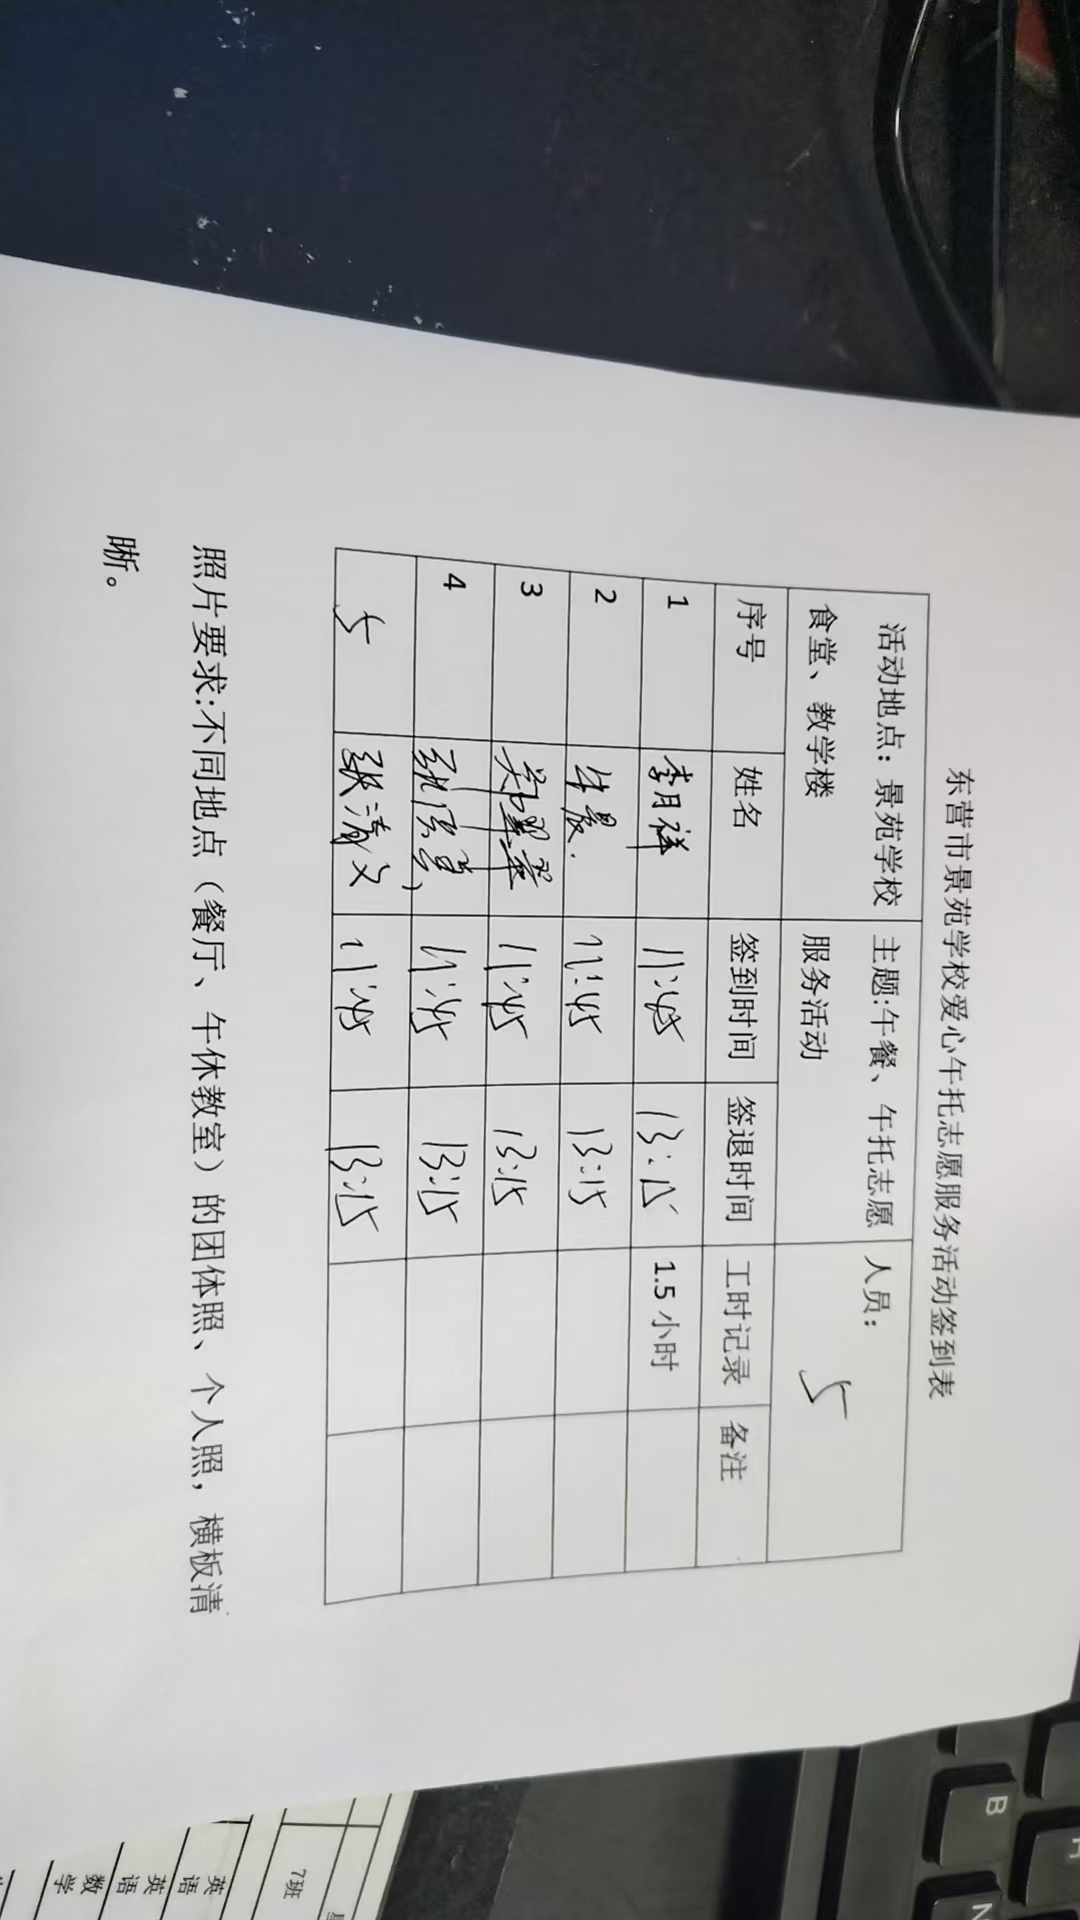 东营市景苑学校爱心午托志愿服务活动签到表
活动地点：景苑学校 主题:午餐、午托志愿 人员：
食堂、教学楼 服务活动 5
序号 姓名 签到时间 签退时间 工时记录 备注
1 李月祥 11:45 13:15 1.5 小时
2 牛晨. 11:45 13:15
3 郑翠翠 11:45 13:15
4 11:45 13:15
5 张清文 11:45 13:15
照片要求:不同地点（餐厅、午休教室）的团体照、个人照，横板清
晰。
7班
英语
英语
数学
B
N